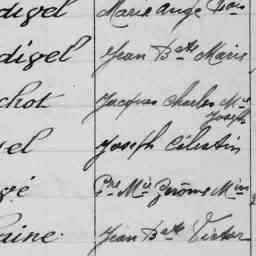 digel Marie Ange
digel Jean Bte Marie
chot Jacques Charles Mie
Joseph
el Joseph Célestin
gé Pre Mie Jérôme Min
aine. Jean Bte Victor